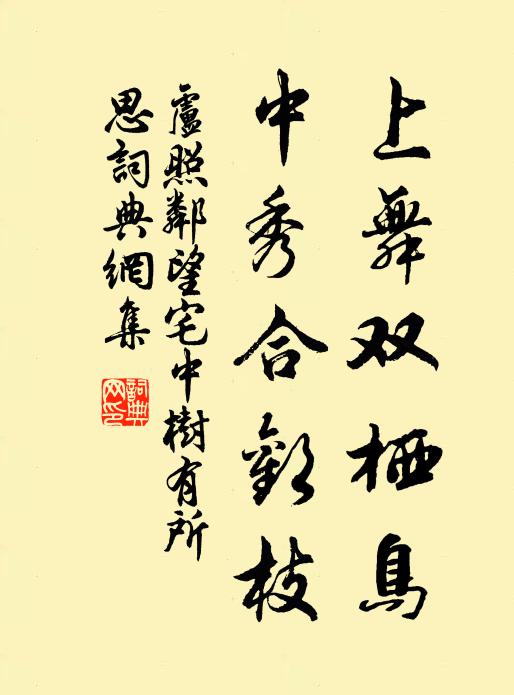 上舞双栖鳥
中秀合歡枝
盧照鄰望宅中樹有所
思詞典網集
詞典
网印